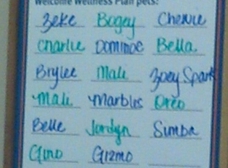 Welcome Wellness Plan pets!
Zeke Bogey Chewie
Charlie Dominoe Bella
Brylee Mali Zoey Spark
Mali Marbles Oreo
Belle Jordyn Simba
Gino Gizmo